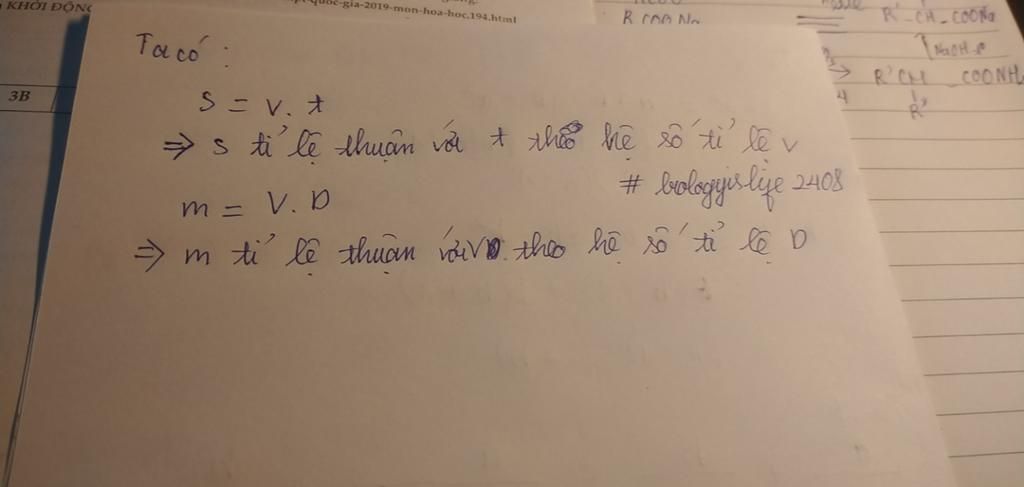 KHỞI ĐỘNG
pt-quoc-gia-2019-mon-hoa-hoc,194.html
3B
R COO Na
R' - CH - COONa
NaOH
R' CH COONH
R'
Ta có :
s = v. t
⇒ s tỉ lệ thuận với t theo hệ số tỉ lệ v
# biologyislife 2408
m = V. D
⇒ m tỉ lệ thuận với V theo hệ số tỉ lệ D